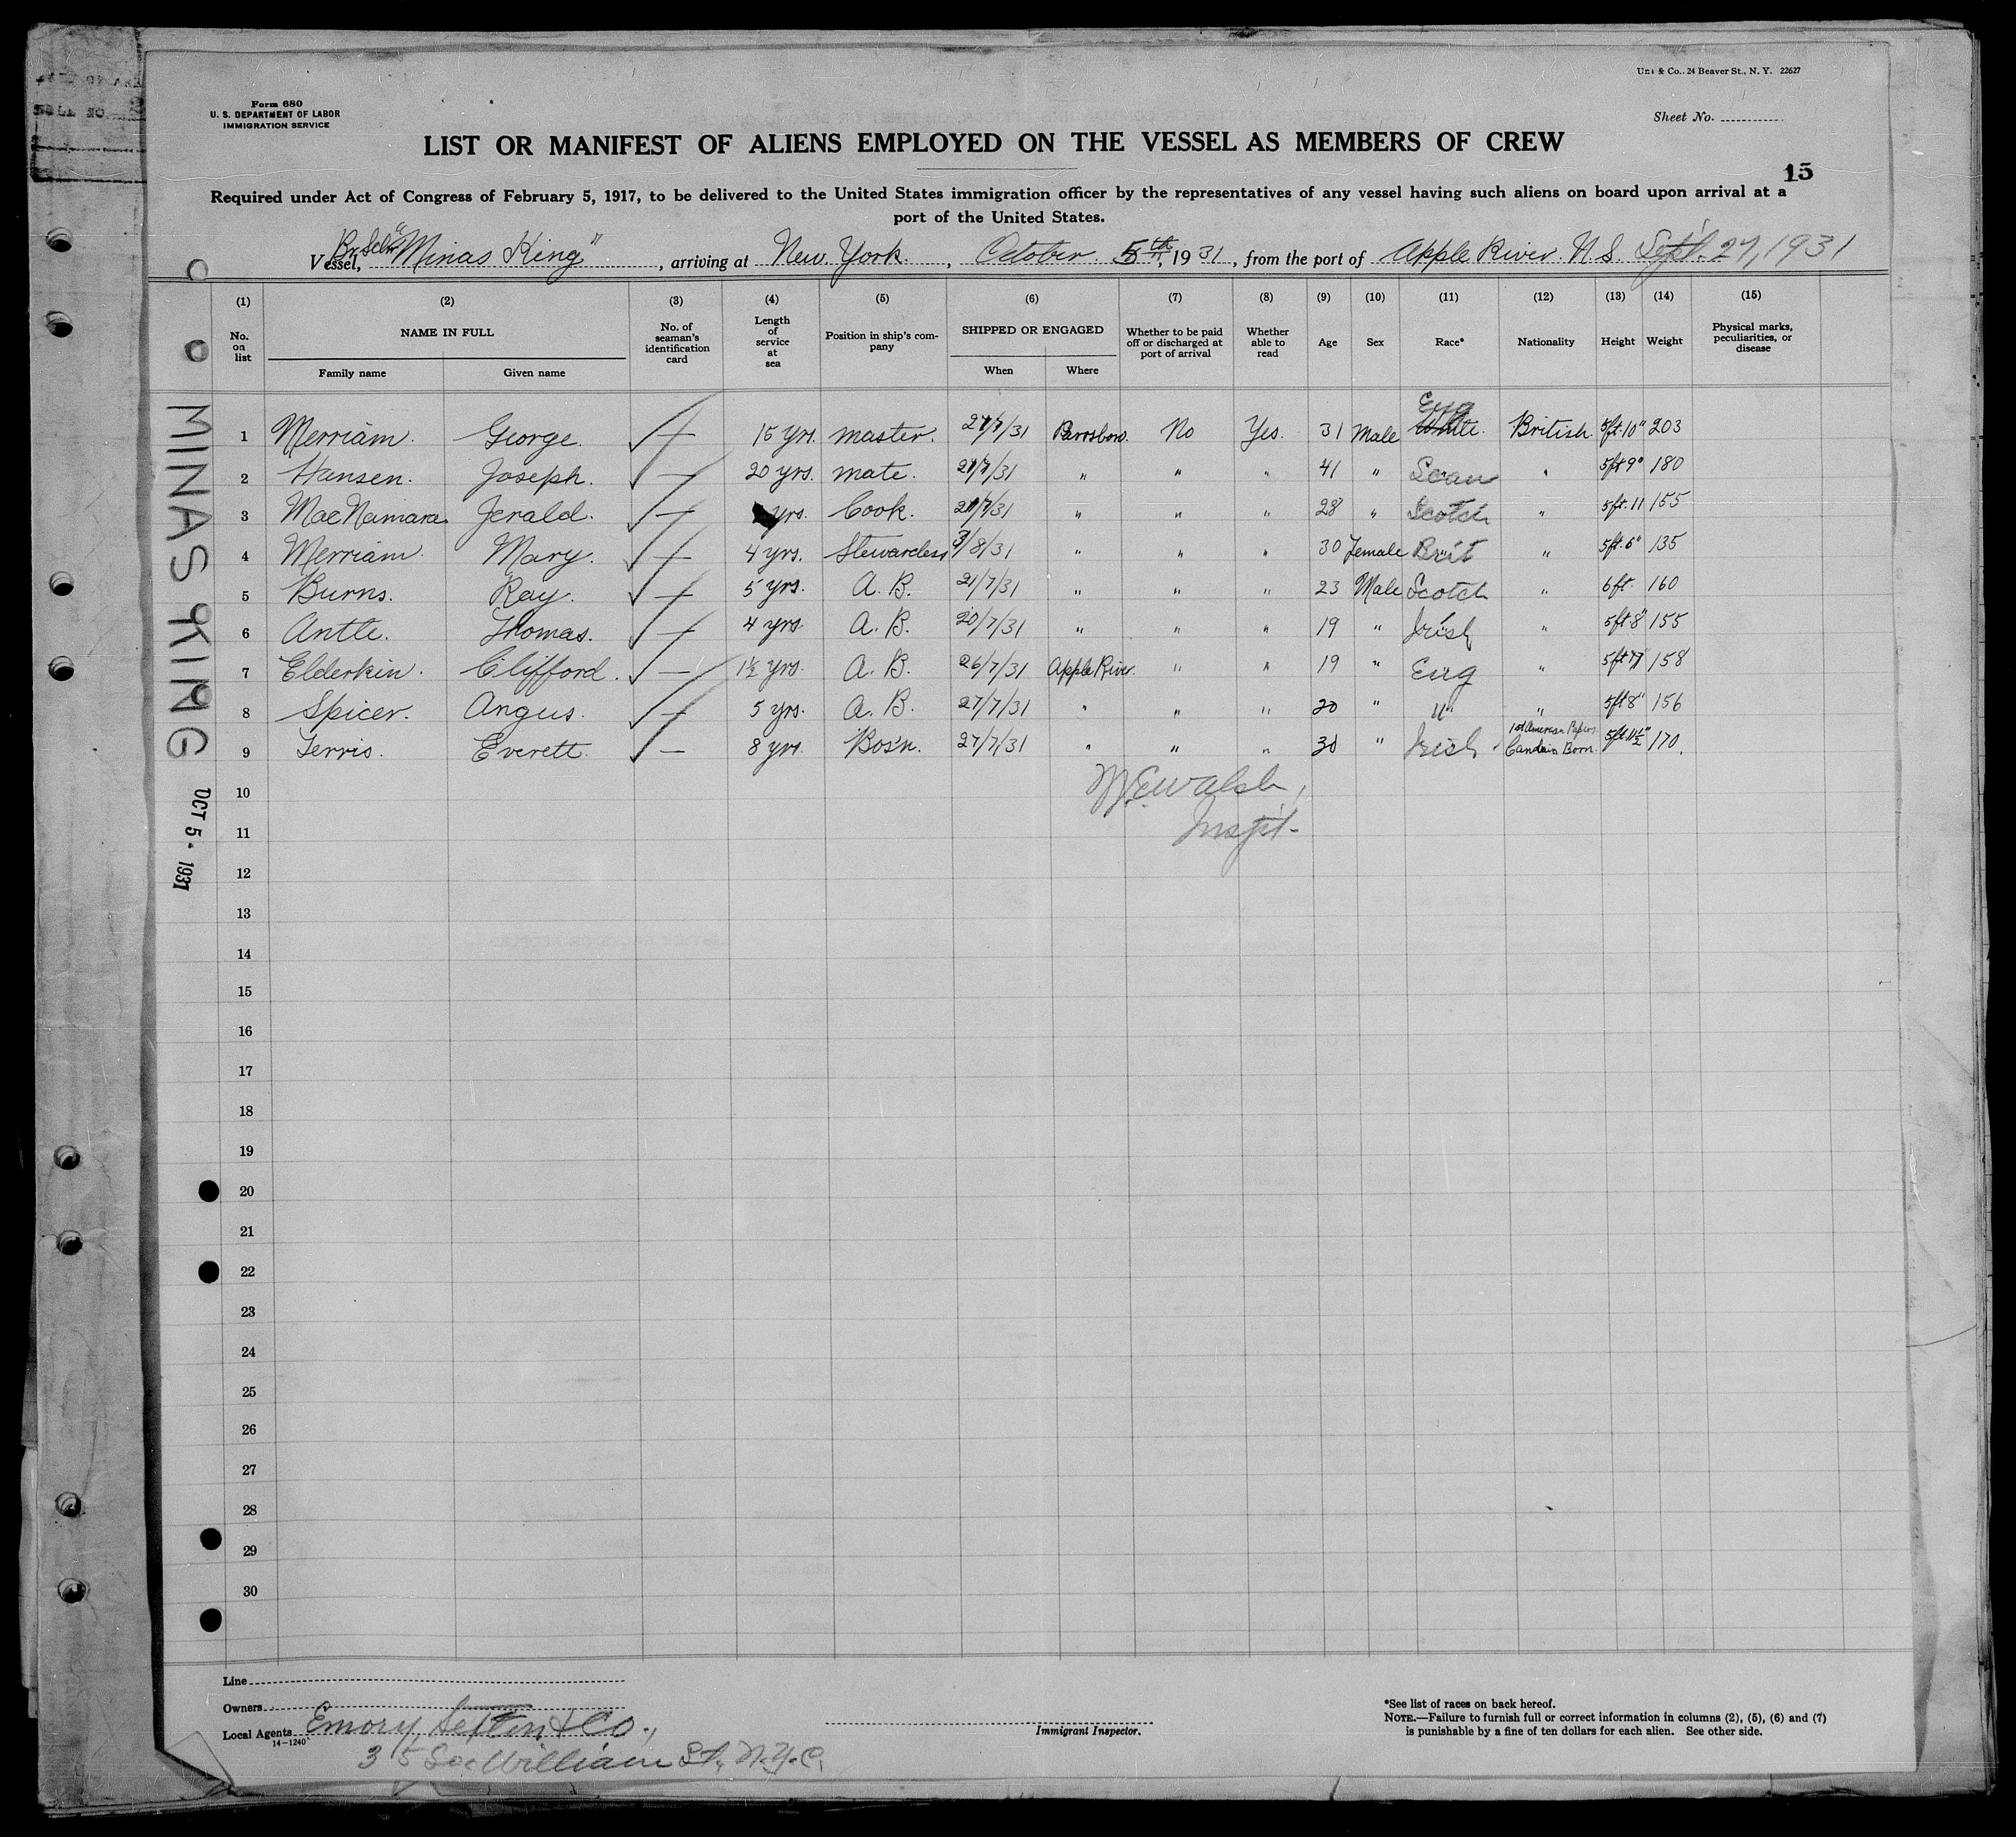 Form 680
U. S. DEPARTMENT OF LABOR
IMMIGRATION SERVICE
& Co., 24 Beaver St., N. Y. 22627
Sheet No.
LIST OR MANIFEST OF ALIENS EMPLOYED ON THE VESSEL AS MEMBERS OF CREW
15
Required under Act of Congress of February 5, 1917, to be delivered to the United States immigration officer by the representatives of any vessel having such aliens on board upon arrival at a
port of the United States.
Vessel, Br Schr "Minas King", arriving at New York, October 5th, 1931, from the port of Apple River. N.S. Sept. 27, 1931
(1) (2) (3) (4) (5) (6) (7) (8) (9) (10) (11) (12) (13) (14) (15)
No. on list NAME IN FULL Family name Given name No. of seaman's identification card Length of service at sea Position in ship's company SHIPPED OR ENGAGED When Where Whether to be paid off or discharged at port of arrival Whether able to read Age Sex Race* Nationality Height Weight Physical marks, peculiarities, or disease
1 Merriam. George. ✓ — 15 yrs. master. 27/7/31 Parrsboro. No Yes. 31 Male Eng White. British. 5ft.10" 203
2 Hansen. Joseph. ✓ — 20 yrs. mate. 21/7/31 " " " 41 " Scan " 5ft 9" 180
3 MacNamara. Jerald. ✓ — yrs. Cook. 21/7/31 " " " 28 " Scotch " 5ft. 11 155
4 Merriam. Mary. ✓ — 4 yrs. Stewardess 3/8/31 " " " 30 Female Brit " 5ft. 6" 135
5 Burns. Ray. ✓ — 5 yrs. A. B. 21/7/31 " " " 23 Male Scotch " 6ft. 160
6 Antle. Thomas. ✓ — 4 yrs. A. B. 20/7/31 " " " 19 " Irish " 5ft 8" 155
7 Elderkin. Clifford. ✓ — 1½ yrs. A. B. 26/7/31 Apple River. " " 19 " Eng " 5ft 7" 158
8 Spicer. Angus. ✓ — 5 yrs. A. B. 27/7/31 " " " 20 " " " 5ft 8" 156
9 Ferris. Everett. ✓ — 8 yrs. Bos'n. 27/7/31 " " " 30 " Irish 1st American Papers. Candain Born. 5ft 11½" 170.
10
M.E. Walsh,
11
Inspt-
12
13
14
15
16
17
18
19
20
21
22
23
24
25
26
27
28
29
30
MINAS KING OCT 5 - 1931
Line
Owners
Local Agents Emory, & Co.,
14-1240
35 So. William St., N.Y.C.
Immigrant Inspector.
*See list of races on back hereof.
NOTE.—Failure to furnish full or correct information in columns (2), (5), (6) and (7)
is punishable by a fine of ten dollars for each alien. See other side.